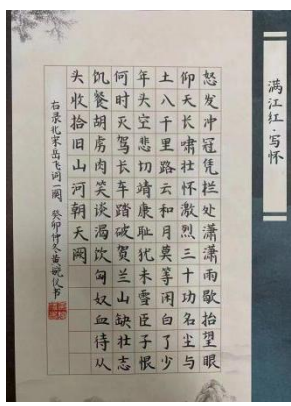 满江红·写怀
怒发冲冠凭栏处潇潇雨歇抬望眼
仰天长啸壮怀激烈三十功名尘与
土八千里路云和月莫等闲白了少
年头空悲切靖康耻犹未雪臣子恨
何时灭驾长车踏破贺兰山缺壮志
饥餐胡虏肉笑谈渴饮匈奴血待从
头收拾旧山河朝天阙
右录北宋岳飞词一阕 癸卯仲冬黄婉仪书